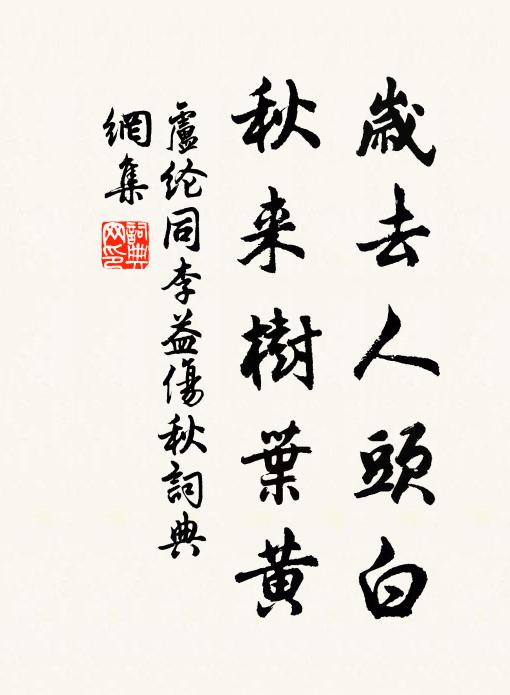 歲去人頭白
秋来樹葉黃
盧纶同李益傷秋詞典
網集
詞典
网印